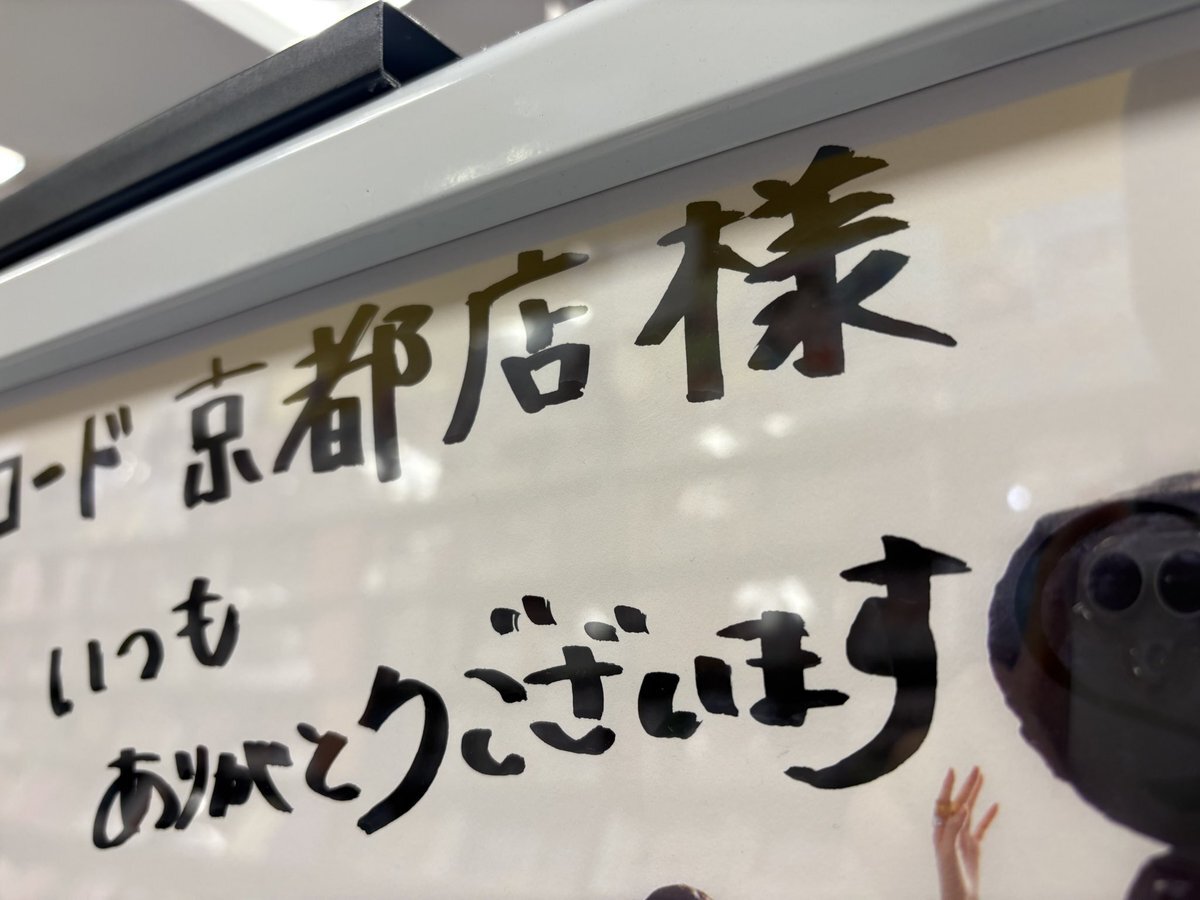 コード 京都店 様
いつも
ありがとうございます